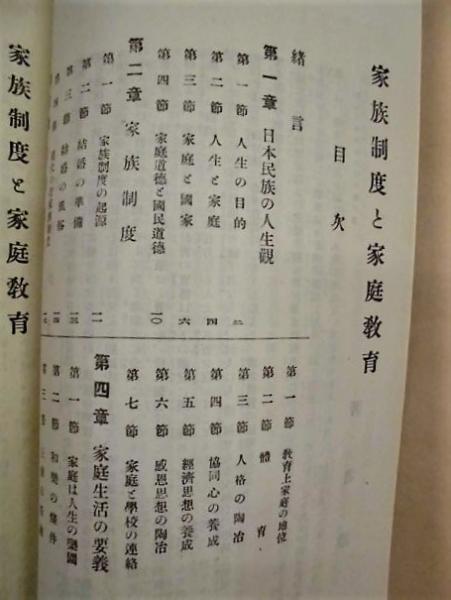 家族制度と家庭教育
目次
緒言
第一章 日本民族の人生觀
第一節 人生の目的 二
第二節 人生と家庭 四
第三節 家庭と國家 六
第四節 家庭道德と國民道德 一〇
第二章 家族制度
第一節 家族制度の起源 一一
第二節 結婚の準備 一三
第三節 結婚の風俗 一四
第一節 教育上家庭の地位
第二節 體育
第三節 人格の陶冶
第四節 協同心の養成
第五節 經濟思想の養成
第六節 感恩思想の陶冶
第七節 家庭と學校の連絡
第四章 家庭生活の要義
第一節 家庭は人生の樂園
第二節 和樂の條件
第三節
家族制度と家庭教育